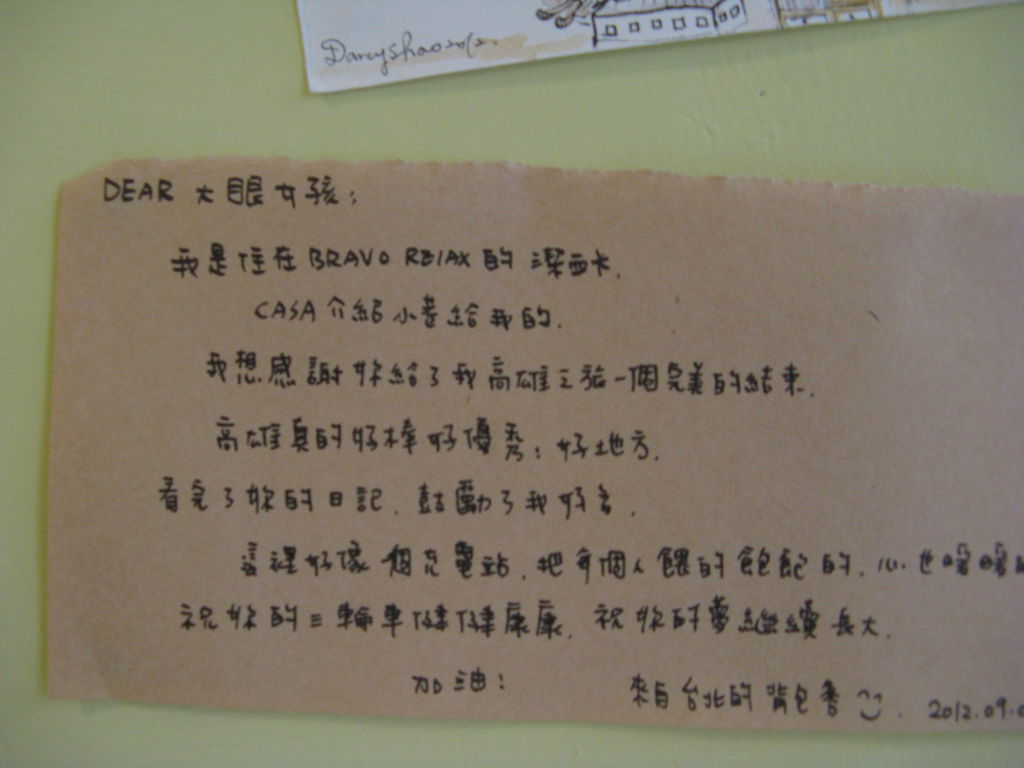 Darcyshao2012.
DEAR 大眼女孩:
我是住在 BRAVO RELAX 的 潔西卡.
CASA 介紹小巷給我的.
我想感謝妳給了我高雄之旅一個完美的結束.
高雄真的好棒好優秀! 好地方.
看完了妳的日記. 鼓勵了我好多.
這裡好像個充電站. 把每個人餵的飽飽的. 心也暖暖
祝妳的三輪車健健康康. 祝妳的夢繼續長大.
加油!
來自台北的背包客 . 2012.09.0